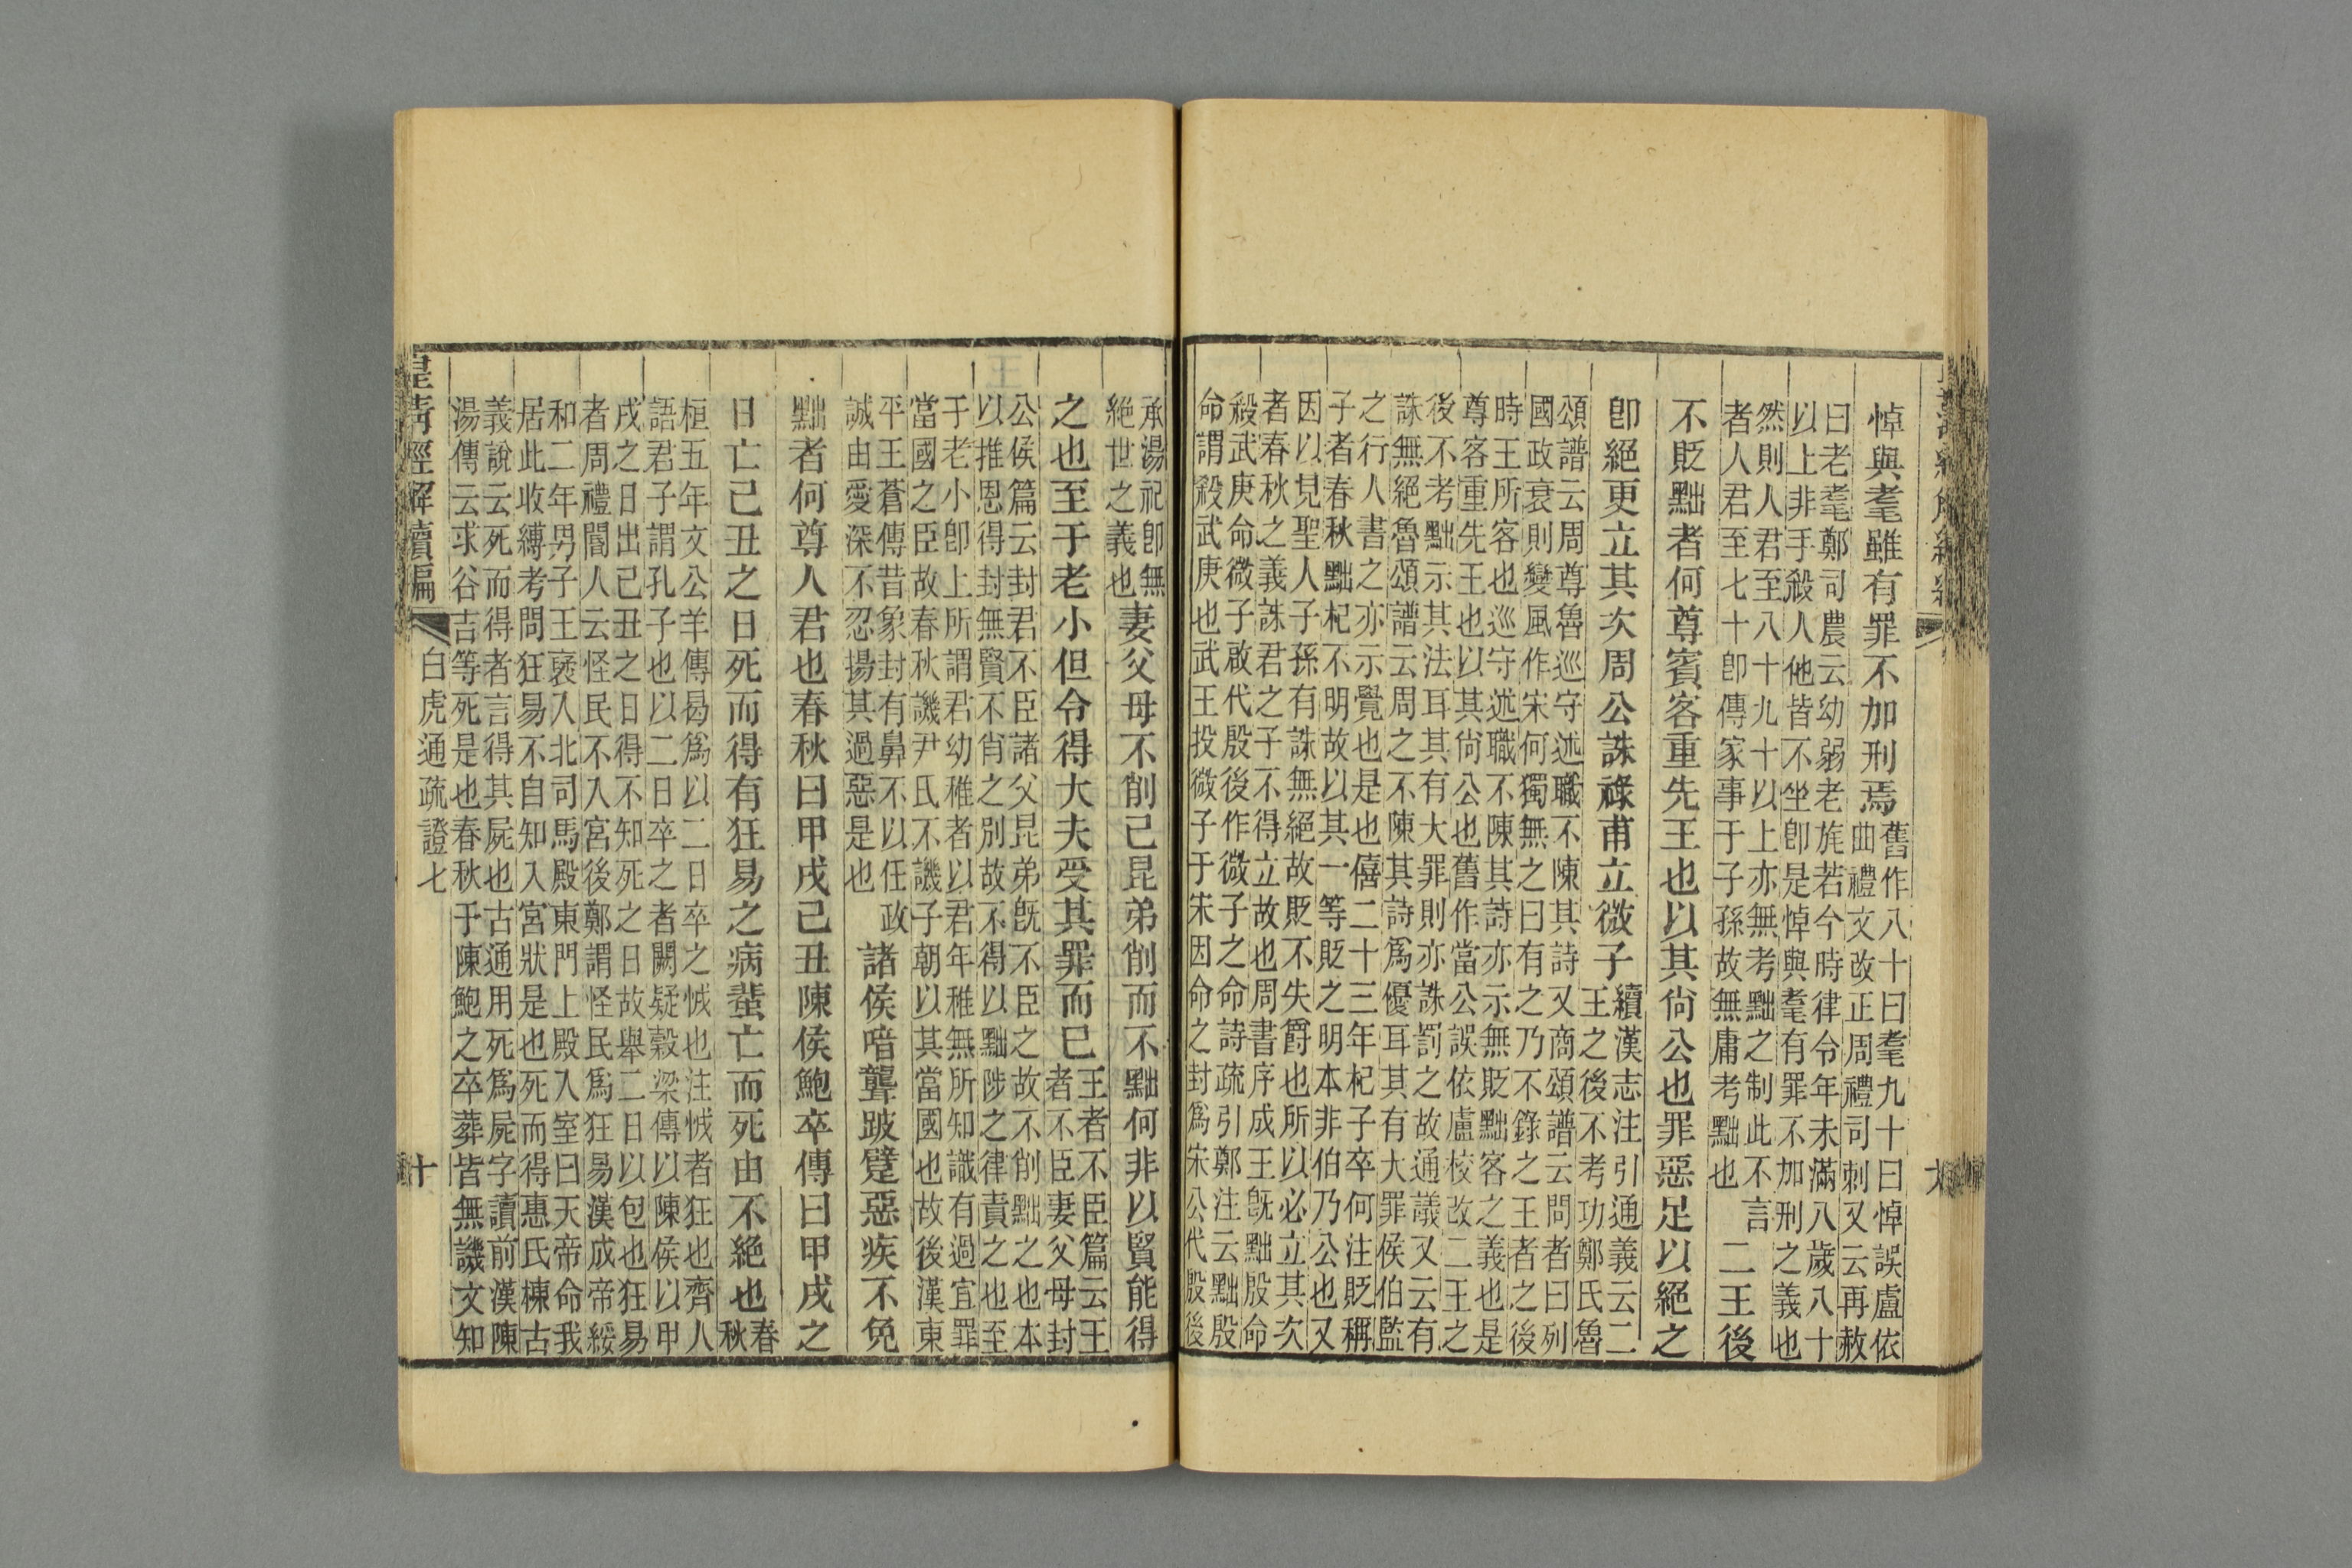 悼與耄雖有罪不加刑焉
舊作八十曰耄九十曰悼誤盧依
曲禮文改正周禮司刺又云再赦
曰老耄鄭司農云幼弱老旄若今時律令年未滿八歲八十
以上非手殺人他皆不坐卽是悼與耄有罪不加刑之義也
然則人君至八十九十以上亦無考黜之制此不言
者人君至七十卽傳家事于子孫故無庸考黜也
二王後
不貶黜者何尊賓客重先王也以其尙公也罪惡足以絕之
卽絕更立其次周公誅祿甫立微子
續漢志注引通義云二
王之後不考功鄭氏魯
頌譜云周尊魯巡守述職不陳其詩又商頌譜云問者曰列
國政衰則變風作宋何獨無之曰有之乃不錄之王者之後
時王所客也巡守述職不陳其詩亦示無貶黜客之義也是
尊客重先王也以其尙公也舊作當公誤依盧校改二王之
後不考黜示其法耳其有大罪則亦誅罰之故通議又云有
誅無絕魯頌譜云周之不陳其詩爲優耳其有大罪侯伯監
之行人書之亦示覺也是也僖二十三年杞子卒何注貶稱
子者春秋黜杞不明故以其一等貶之明本非伯乃公也又
因以見聖人子孫有誅無絕故貶不失爵也所以必立其次
者春秋之義誅君之子不得立故也周書序成王旣黜殷命
殺武庚命微子啟代殷後作微子之命詩疏引鄭注云黜殷
命謂殺武庚也武王投微子于宋因命之封爲宋公代殷後
承湯祀卽無
絕世之義也
妻父母不削己昆弟削而不黜何非以賢能得
之也至于老小但令得大夫受其罪而已
王者不臣篇云王
者不臣妻父母封
公侯篇云封君不臣諸父昆弟旣不臣之故不削黜之也本
以推恩得封無賢不肖之別故不得以黜陟之律責之也至
于老小卽上所謂君幼稚者以君年稚無所知識有過宜罪
當國之臣故春秋譏尹氏不譏子朝以其當國也故後漢東
平王蒼傳昔象封有鼻不以任政
誠由愛深不忍揚其過惡是也
諸侯喑聾跛躄惡疾不免
黜者何尊人君也春秋曰甲戌己丑陳侯鮑卒傳曰甲戌之
日亡己丑之日死而得有狂易之病蜚亡而死由不絕也
春
秋
桓五年文公羊傳曷爲以二日卒之怴也注怴者狂也齊人
語君子謂孔子也以二日卒之者闕疑穀梁傳以陳侯以甲
戌之日出己丑之日得不知死之日故舉二日以包也狂易
者周禮閽人云怪民不入宮後鄭謂怪民爲狂易漢成帝綏
和二年男子王褒入北司馬殿東門上殿入室曰天帝命我
居此收縛考問狂易不自知入宮狀是也死而得惠氏棟古
義說云死而得者言得其屍也古通用死爲屍字讀前漢陳
湯傳云求谷吉等死是也春秋于陳鮑之卒葬皆無譏文知
皇清經解續編 白虎通疏證七 十